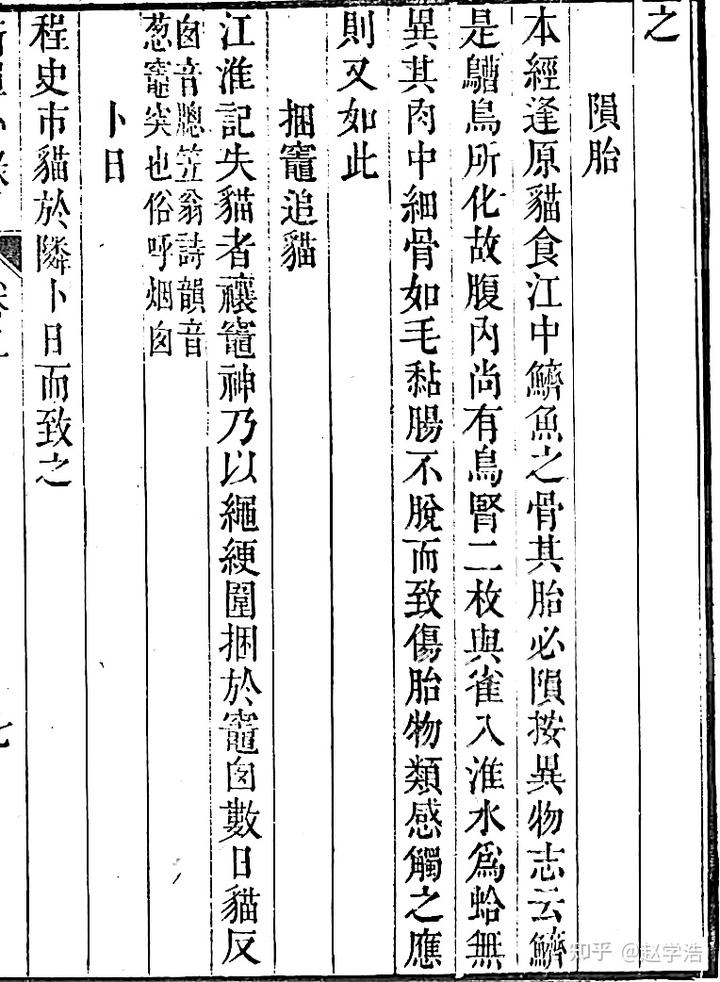 之
隕胎
本經逢原貓食江中鱭魚之骨其胎必隕按異物志云鱭
是鷠鳥所化故腹內尚有鳥腎二枚與雀入淮水爲蛤無
異其肉中細骨如毛黏腸不脫而致傷胎物類感觸之應
則又如此
捆竈追貓
江淮記失貓者禳竈神乃以繩綆圍捆於竈囱數日貓反
囱音聰笠翁詩韻音
葱竈突也俗呼烟囱
卜日
程史市貓於隣卜日而致之
卷
七
知乎 @赵学浩